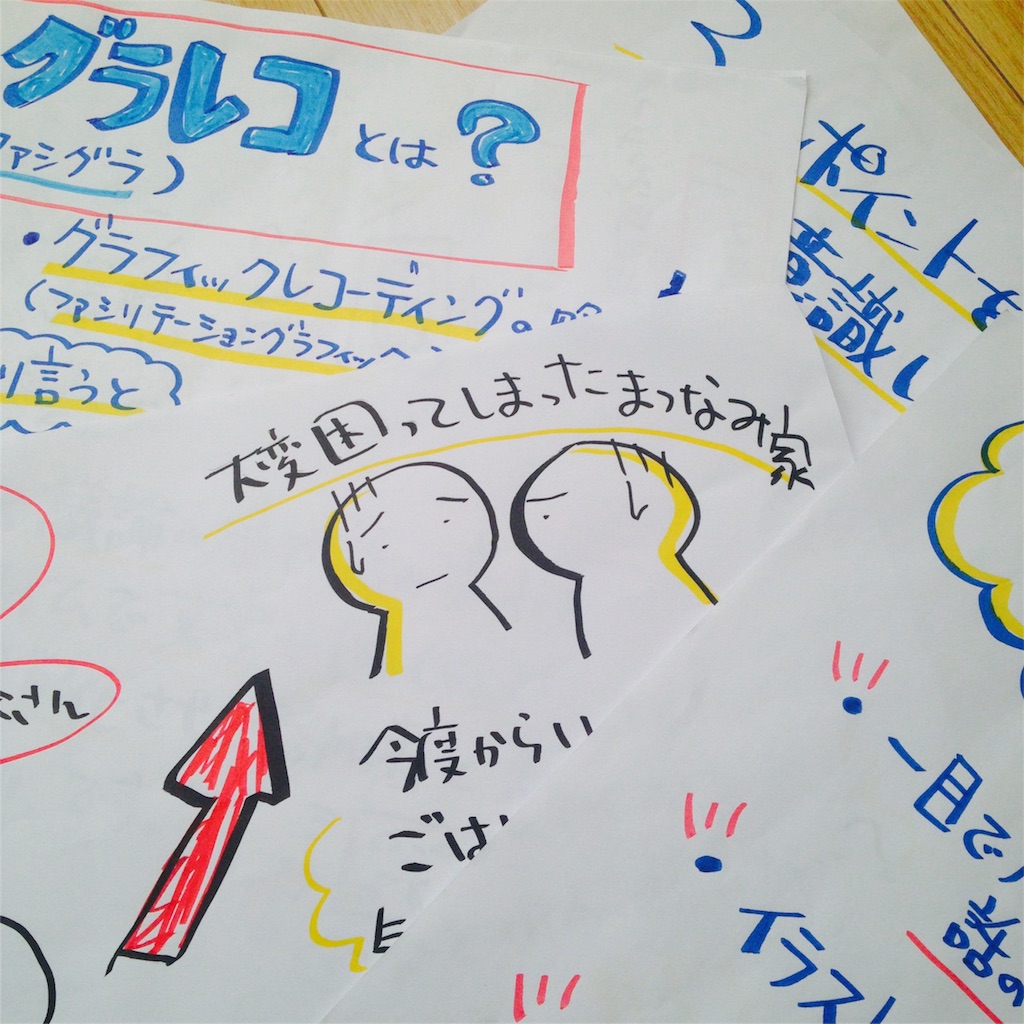 グラレコとは?
ファシグラ)
・グラフィックレコーディング。
(ファシリテーショングラフィッ
言うと
大変困ってしまったまつなみ家
さん
今度からい
ごは
ポイントを
意識し
一目で
話の
イラス